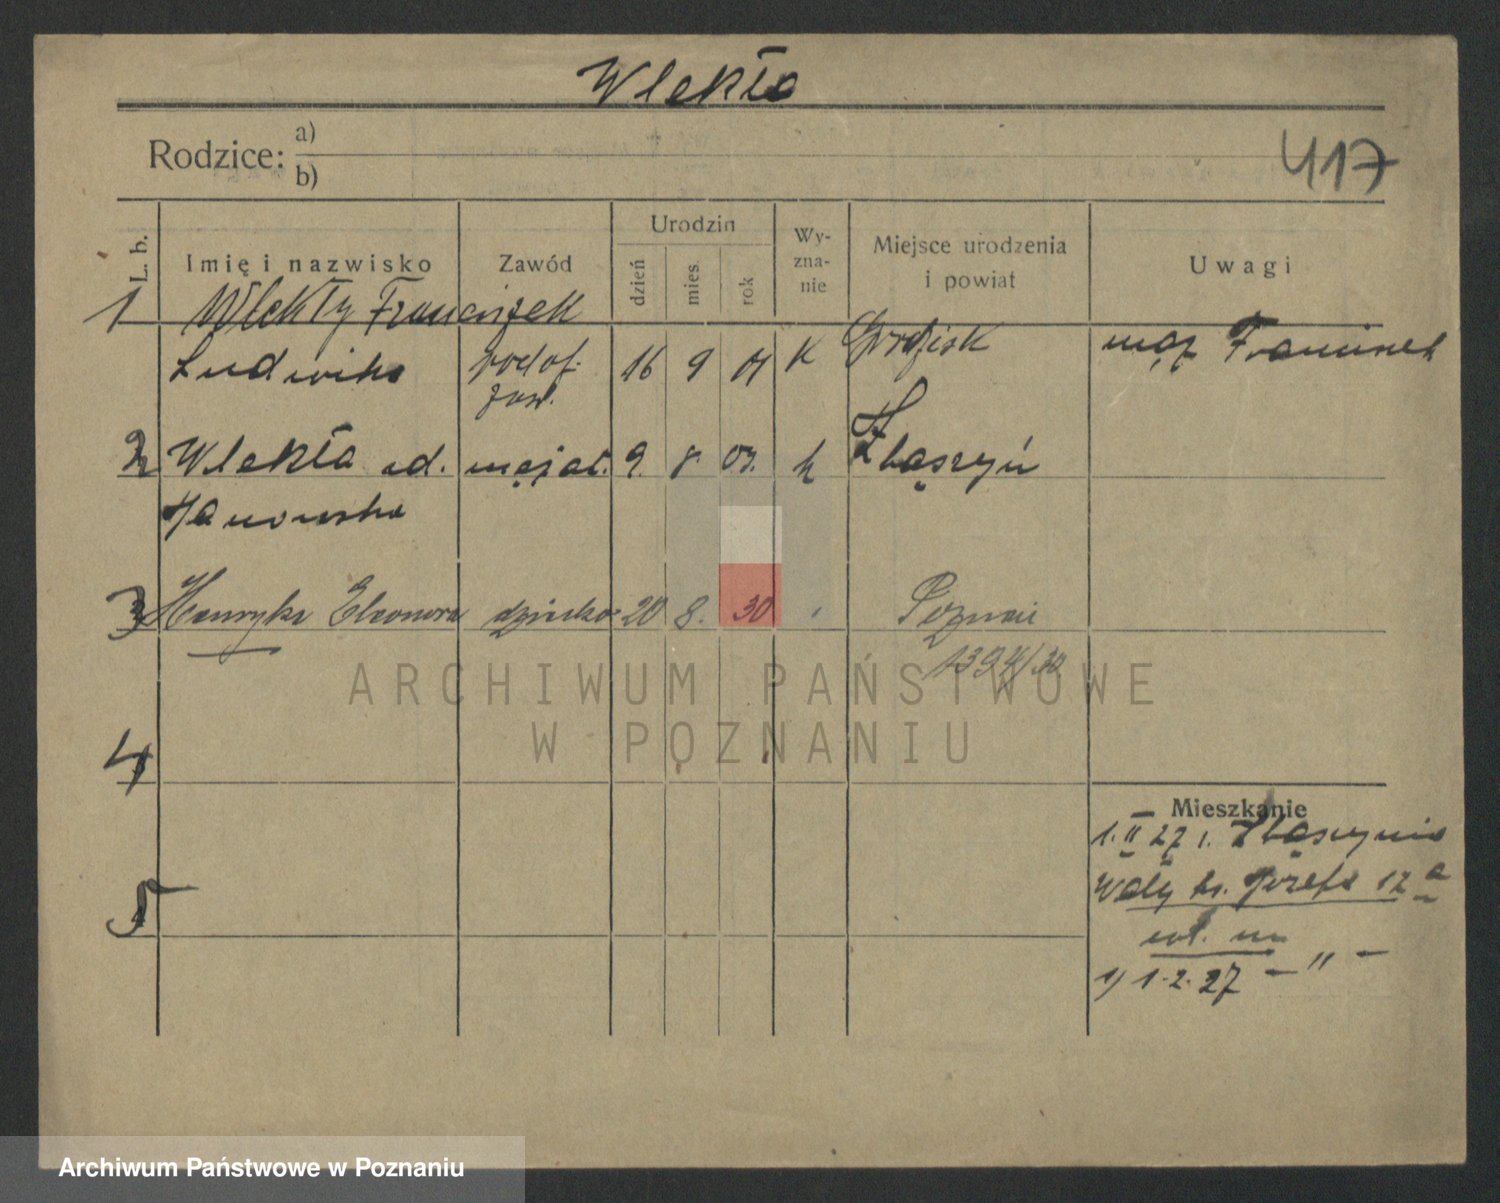 Wlekła
Rodzice:
a)
b)
417
L. b.
Imię i nazwisko
Zawód
Urodzin
dzień
mies.
rok
Wy-
zna-
nie
Miejsce urodzenia
i powiat
Uwagi
1 Wlekły Franciszek
Ludwika
podof. 16 9 01 K Grodzisk mąż Franciszek
zaw.
2 Wlekła
mężat. 9. 8. 03. k Zbąszyń
Janowska
3 Henryka Eleonora dziecko 20 8. 30 Poznań
1394/30
ARCHIWUM PAŃSTWOWE
W POZNANIU
4
5
Mieszkanie
1.II 27 Zbąszynia
Wały Józefa 12 a
1) 1.2.27 — " —
Archiwum Państwowe w Poznaniu